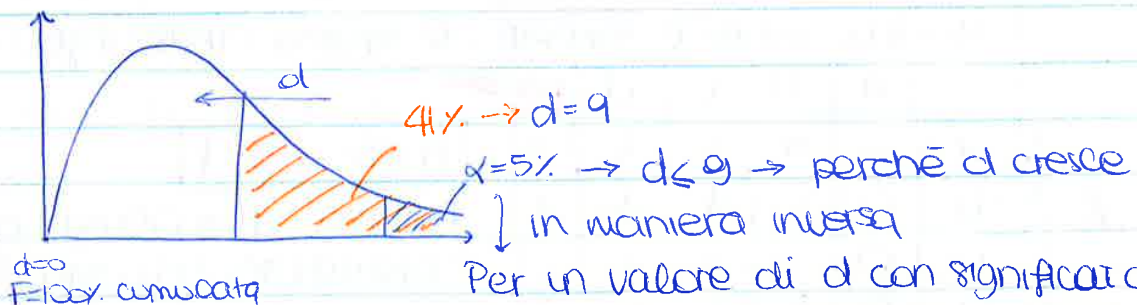 d
41% → d=9
α=5% → d≤9 → perché d cresce
in maniera inversa
d=0
F=100% cumulata
Per un valore di d con significato